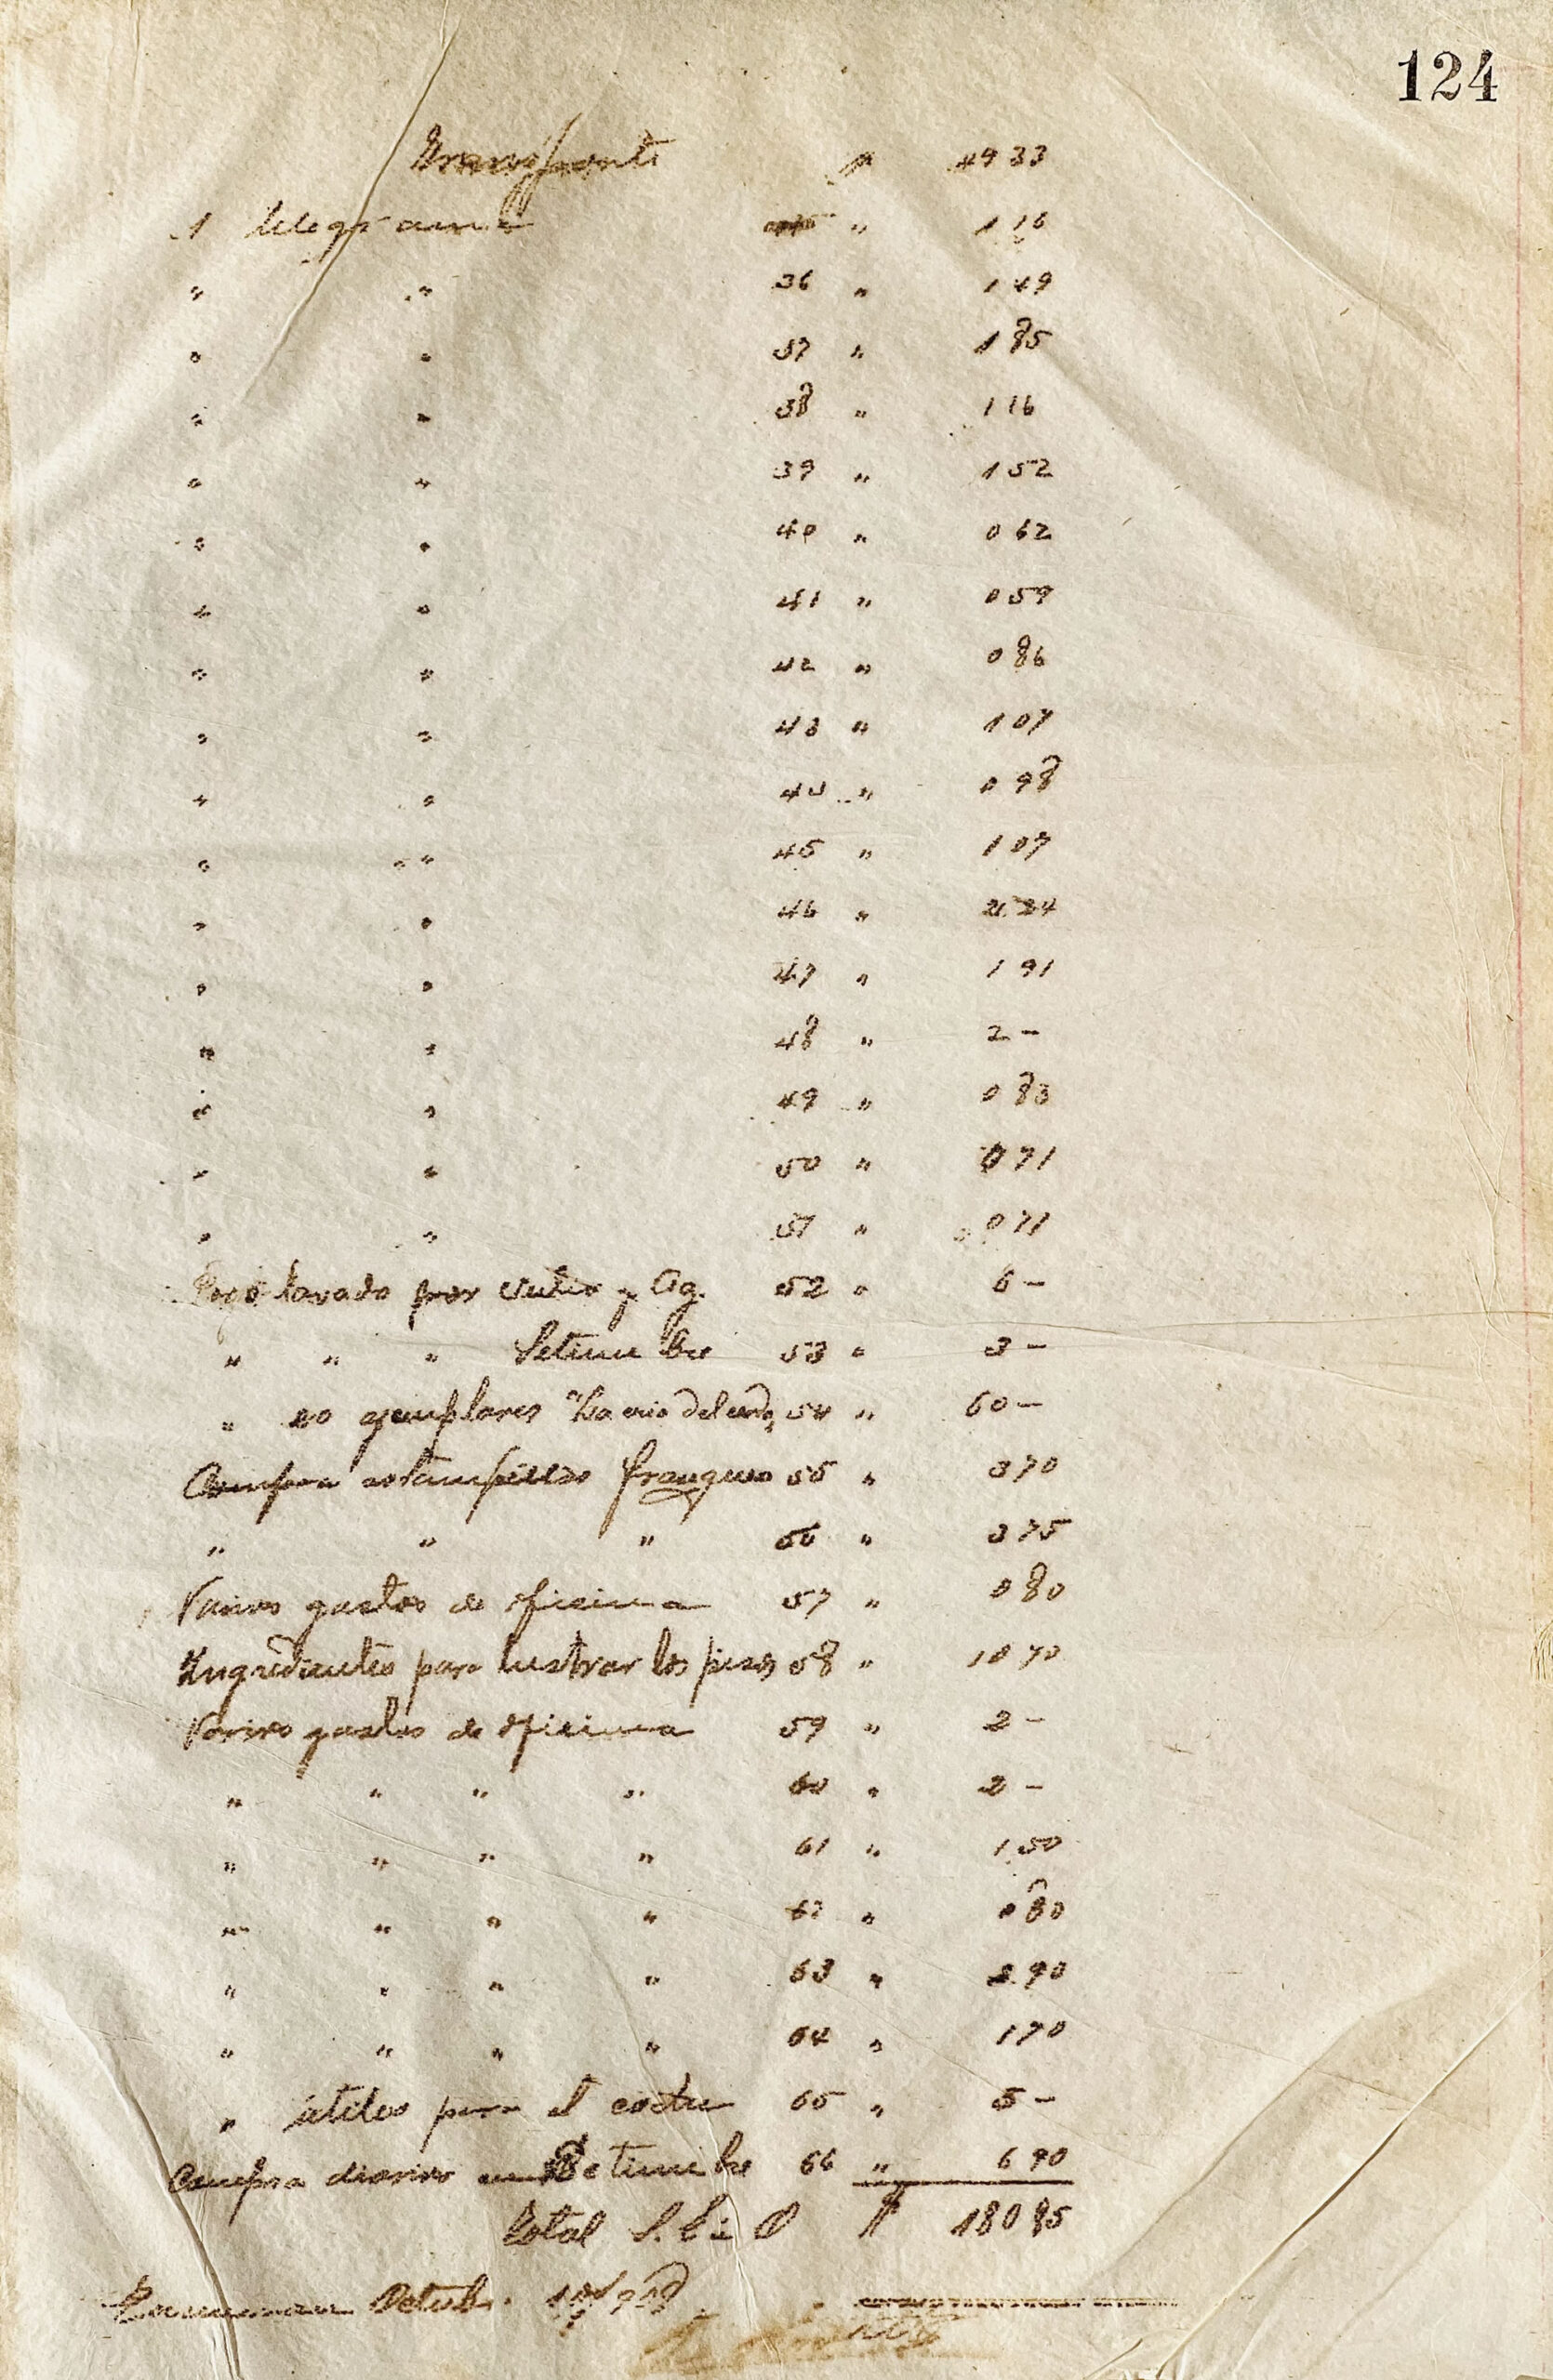 124
Transporte $ 49 33
1 telegrama 35 " 1 16
" " 36 " 1 49
" " 37 " 1 85
" " 38 " 1 16
" " 39 " 1 52
" " 40 " 0 62
" " 41 " 0 59
" " 42 " 0 86
" " 43 " 1 07
" " 44 " 0 98
" " 45 " 1 07
" " 46 " 2 24
" " 47 " 1 91
" " 48 " 2 –
" " 49 " 0 83
" " 50 " 0 71
" " 51 " 0 71
Pago lavado por Julio y Ag. 52 " 6 –
" " " Setiembre 53 " 3 –
" 20 ejemplares 54 " 60 –
Compra estampillas franqueo 55 " 3 70
" " " 56 " 3 75
Varios gastos de oficina 57 " 0 80
Ingredientes para lustrar los pisos 58 " 10 70
Varios gastos de oficina 59 " 2 –
" " " " 60 " 2 –
" " " " 61 " 1 50
" " " " 62 " 0 80
" " " " 63 " 2 90
" " " " 64 " 1 70
" útiles para el 65 " 5 –
Compra diarios Setiembre 66 " 6 90
Total S. E. ú O $ 180 95
Octub.